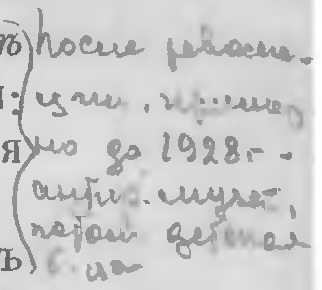 ъ После револю-
: ции, пример
я но до 1928г. -
антир. музей,
потом детская
ъ б-ца